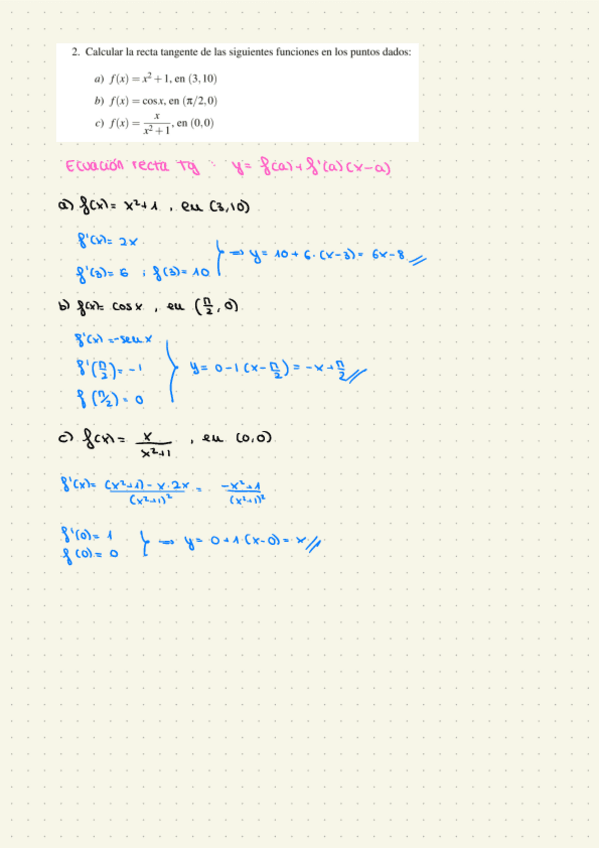 2. Calcular la recta tangente de las siguientes funciones en los puntos dados:
a) f(x) = x² + 1, en (3,10)
b) f(x) = cos x, en (π/2,0)
c) f(x) = x/(x²+1), en (0,0)
Ecuación recta Tg : y = f(a) + f'(a)(x-a)
a) f(x) = x²+1 , en (3,10)
f'(x) = 2x
f'(3) = 6 ; f(3) = 10 } ⇒ y = 10 + 6·(x-3) = 6x-8 //
b) f(x) = cos x , en (π/2, 0)
f'(x) = -sen x
f'(π/2) = -1 } y = 0-1(x-π/2) = -x+π/2 //
f(π/2) = 0
c) f(x) = x/(x²+1) , en (0,0)
f'(x) = ((x²+1) - x·2x)/(x²+1)² = (-x²+1)/(x²+1)²
f'(0) = 1 } ⇒ y = 0+1·(x-0) = x //
f(0) = 0